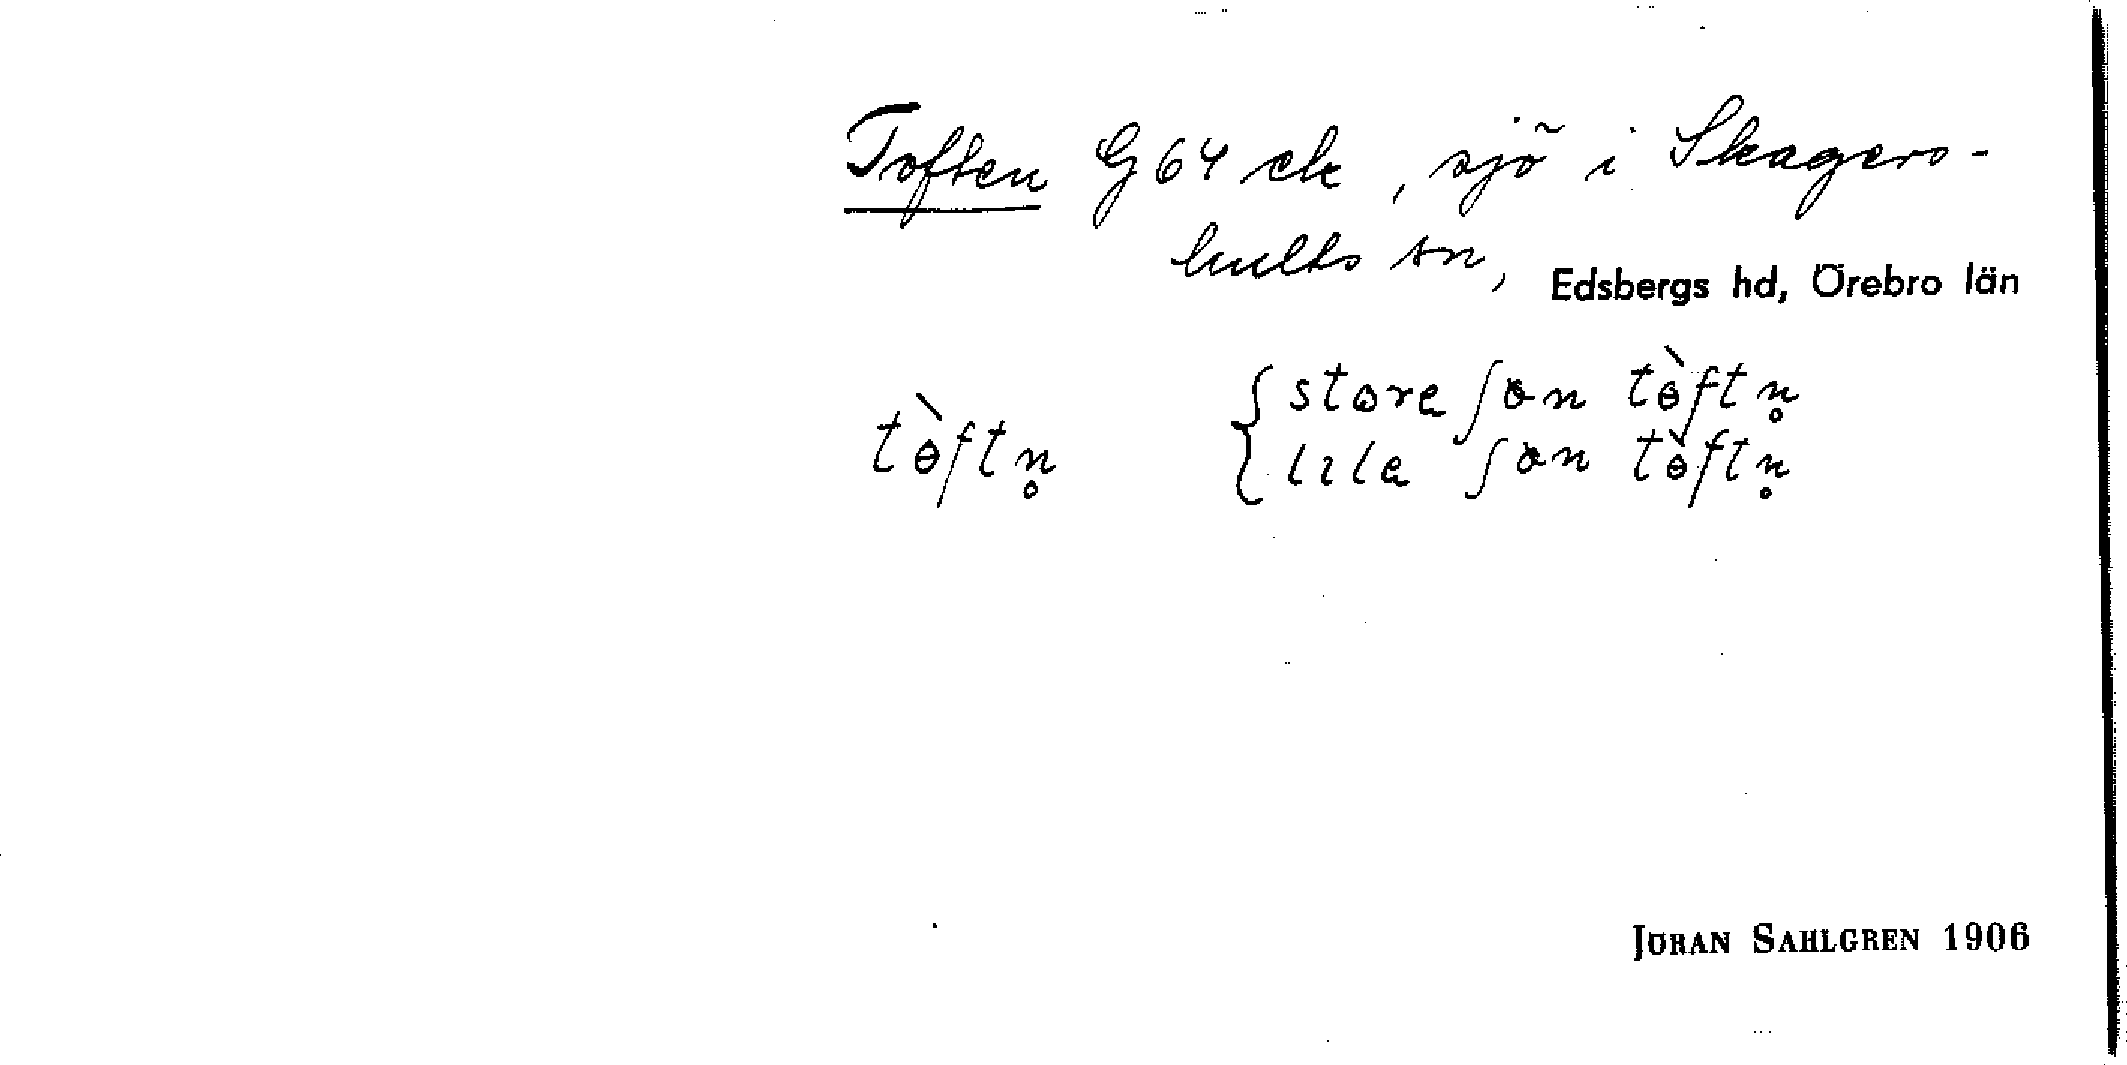 Toften G64 ck, sjö i Skagers-
hults sn, Edsbergs hd, Örebro län
tɵ̀ftn̥ { store ʃøn tɵ̀ftn̥
lila ʃøn tɵ̀ftn̥
JÖRAN SAHLGREN 1906